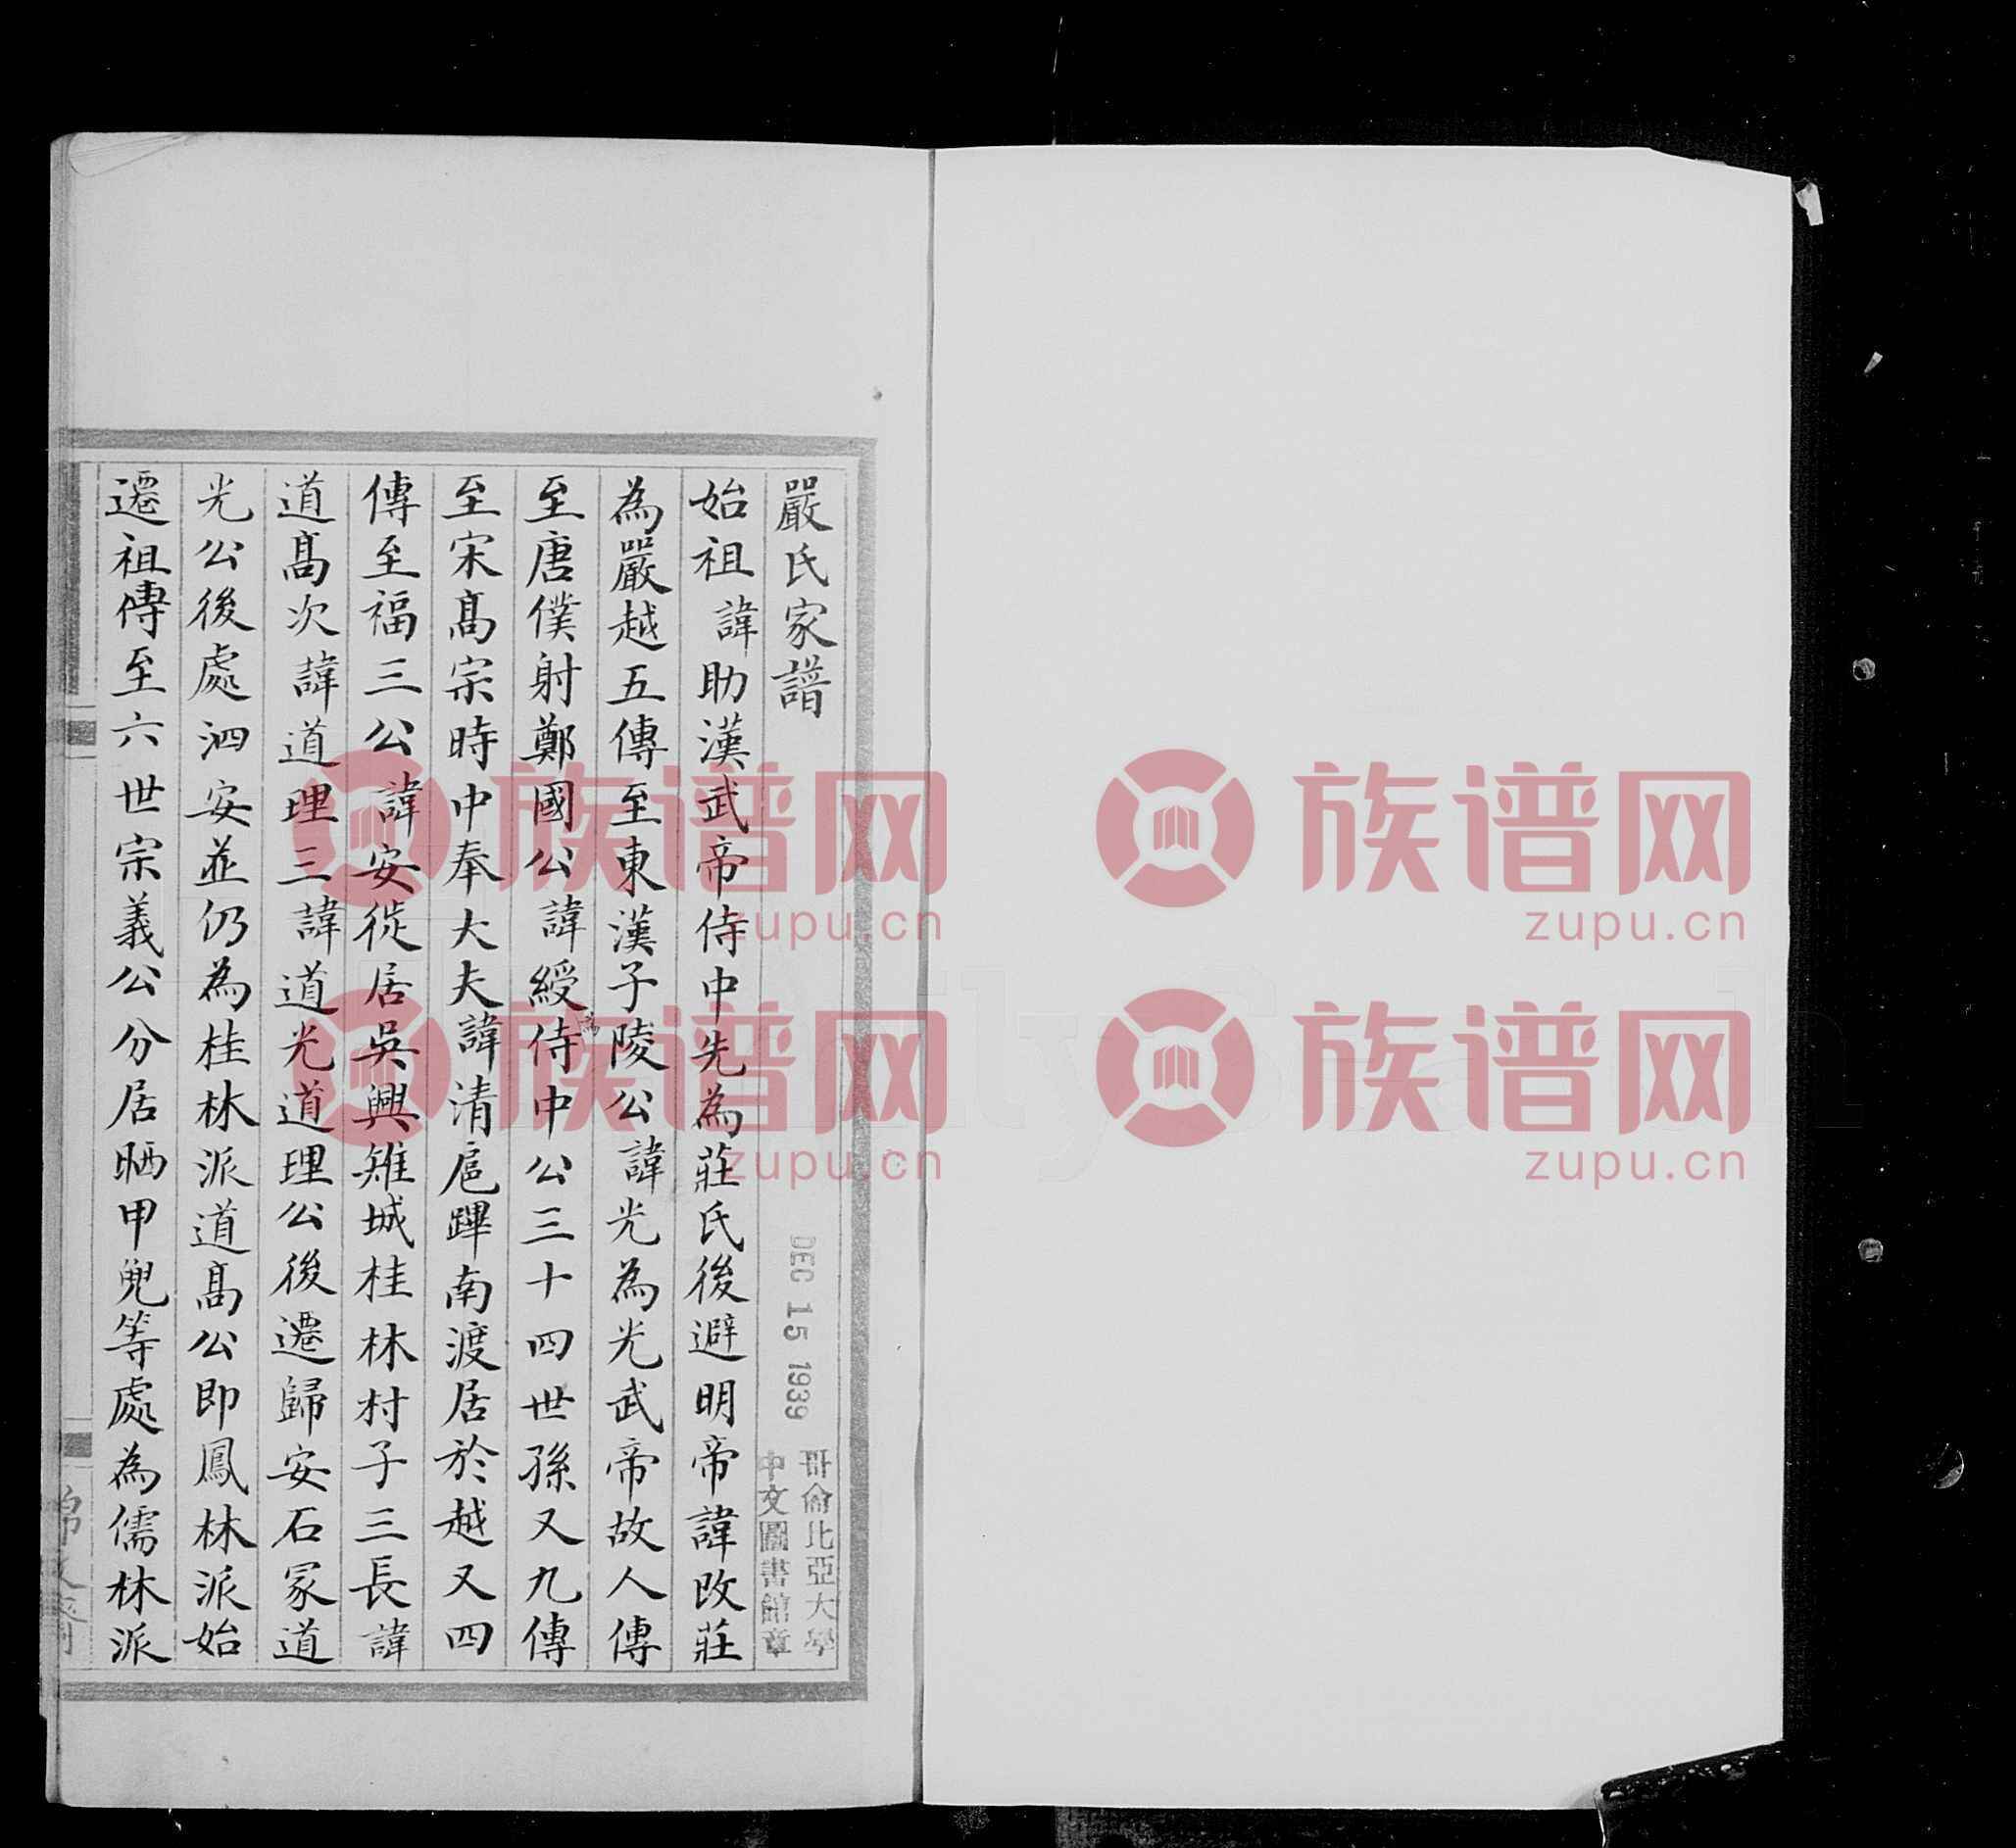 嚴氏家譜
始祖諱助漢武帝侍中先為莊氏後避明帝諱改莊
為嚴越五傳至東漢子陵公諱光為光武帝故人傳
至唐僕射鄭國公諱綬為侍中公三十四世孫又九傳
至宋髙宗時中奉大夫諱清扈蹕南渡居於越又四
傳至福三公諱安徙居吳興雉城桂林村子三長諱
道髙次諱道理三諱道光道理公後遷歸安石冢道
光公後處泗安並仍為桂林派道髙公即鳳林派始
遷祖傳至六世宗義公分居晒甲兜等處為儒林派
DEC 15 1939
哥倫比亞大學
中文圖書館章
族谱网
zupu.cn
族谱网
zupu.cn
族谱网
zupu.cn
族谱网
zupu.cn